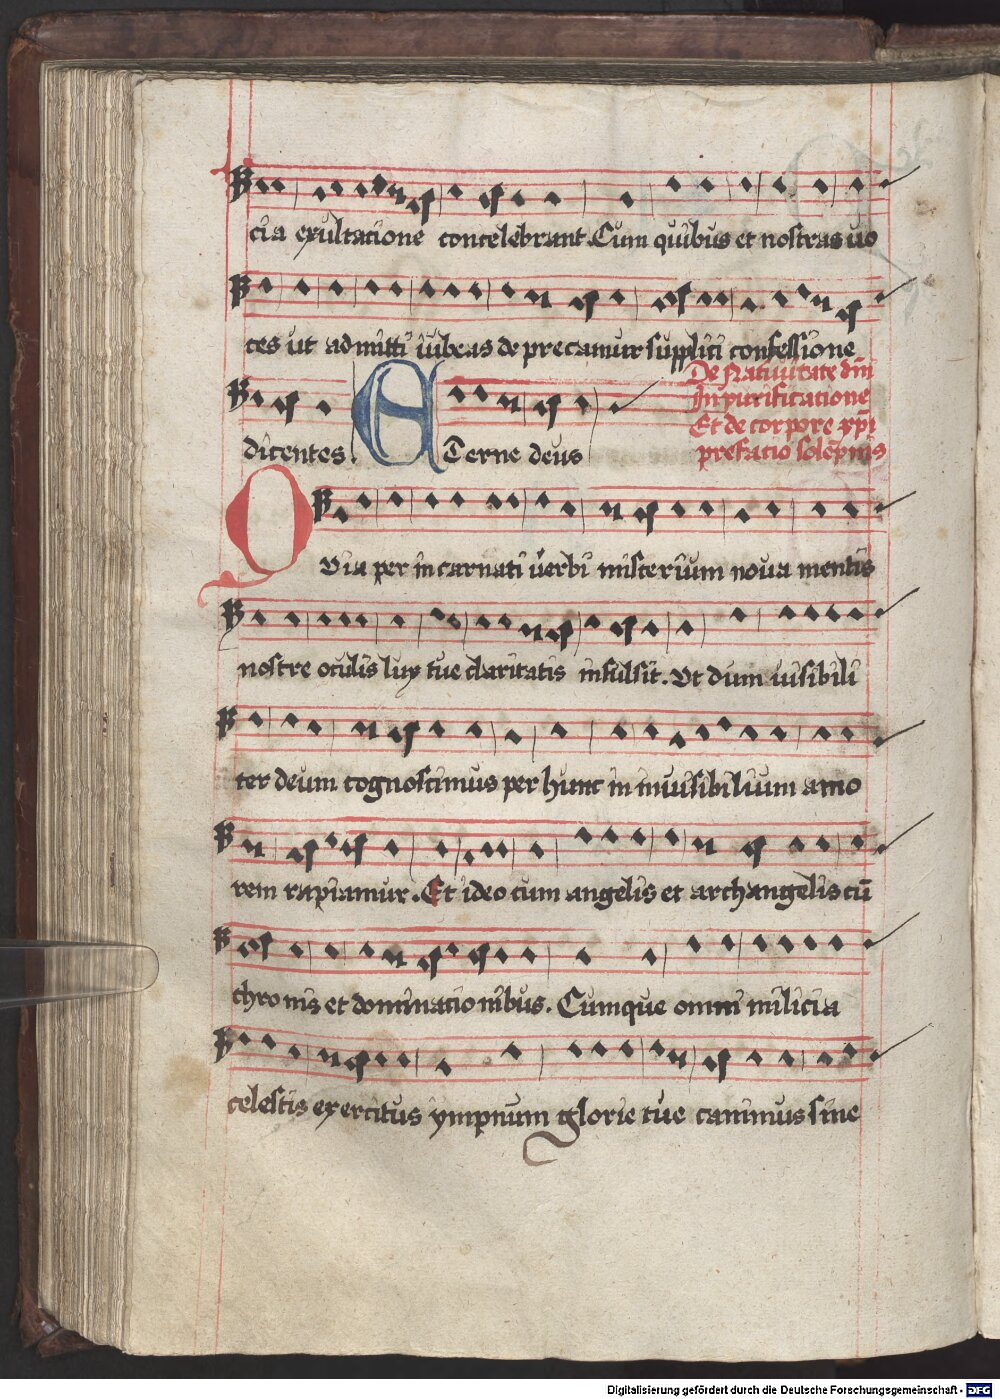 cia exultacione concelebrant. Cum quibus et nostras uo
ces ut admitti iubeas deprecamur suppliti confessione
dicentes. ETerne deus
De Natiuitate dn̄i
In purificatione
Et de corpore xp̄i
prefacio solēpnis
QVia per incarnati verbi misterium noua mentis
nostre oculis lux tue claritatis infulsit. Vt dum uisibili
ter deum cognoscimus per hunc in inuisibilium amo
rem rapiamur. Et ideo cum angelis et archangelis cū
thronis et dominacionibus. Cumque omni milicia
celestis exercitus ympnum glorie tue canimus sine
Digitalisierung gefördert durch die Deutsche Forschungsgemeinschaft - DFG